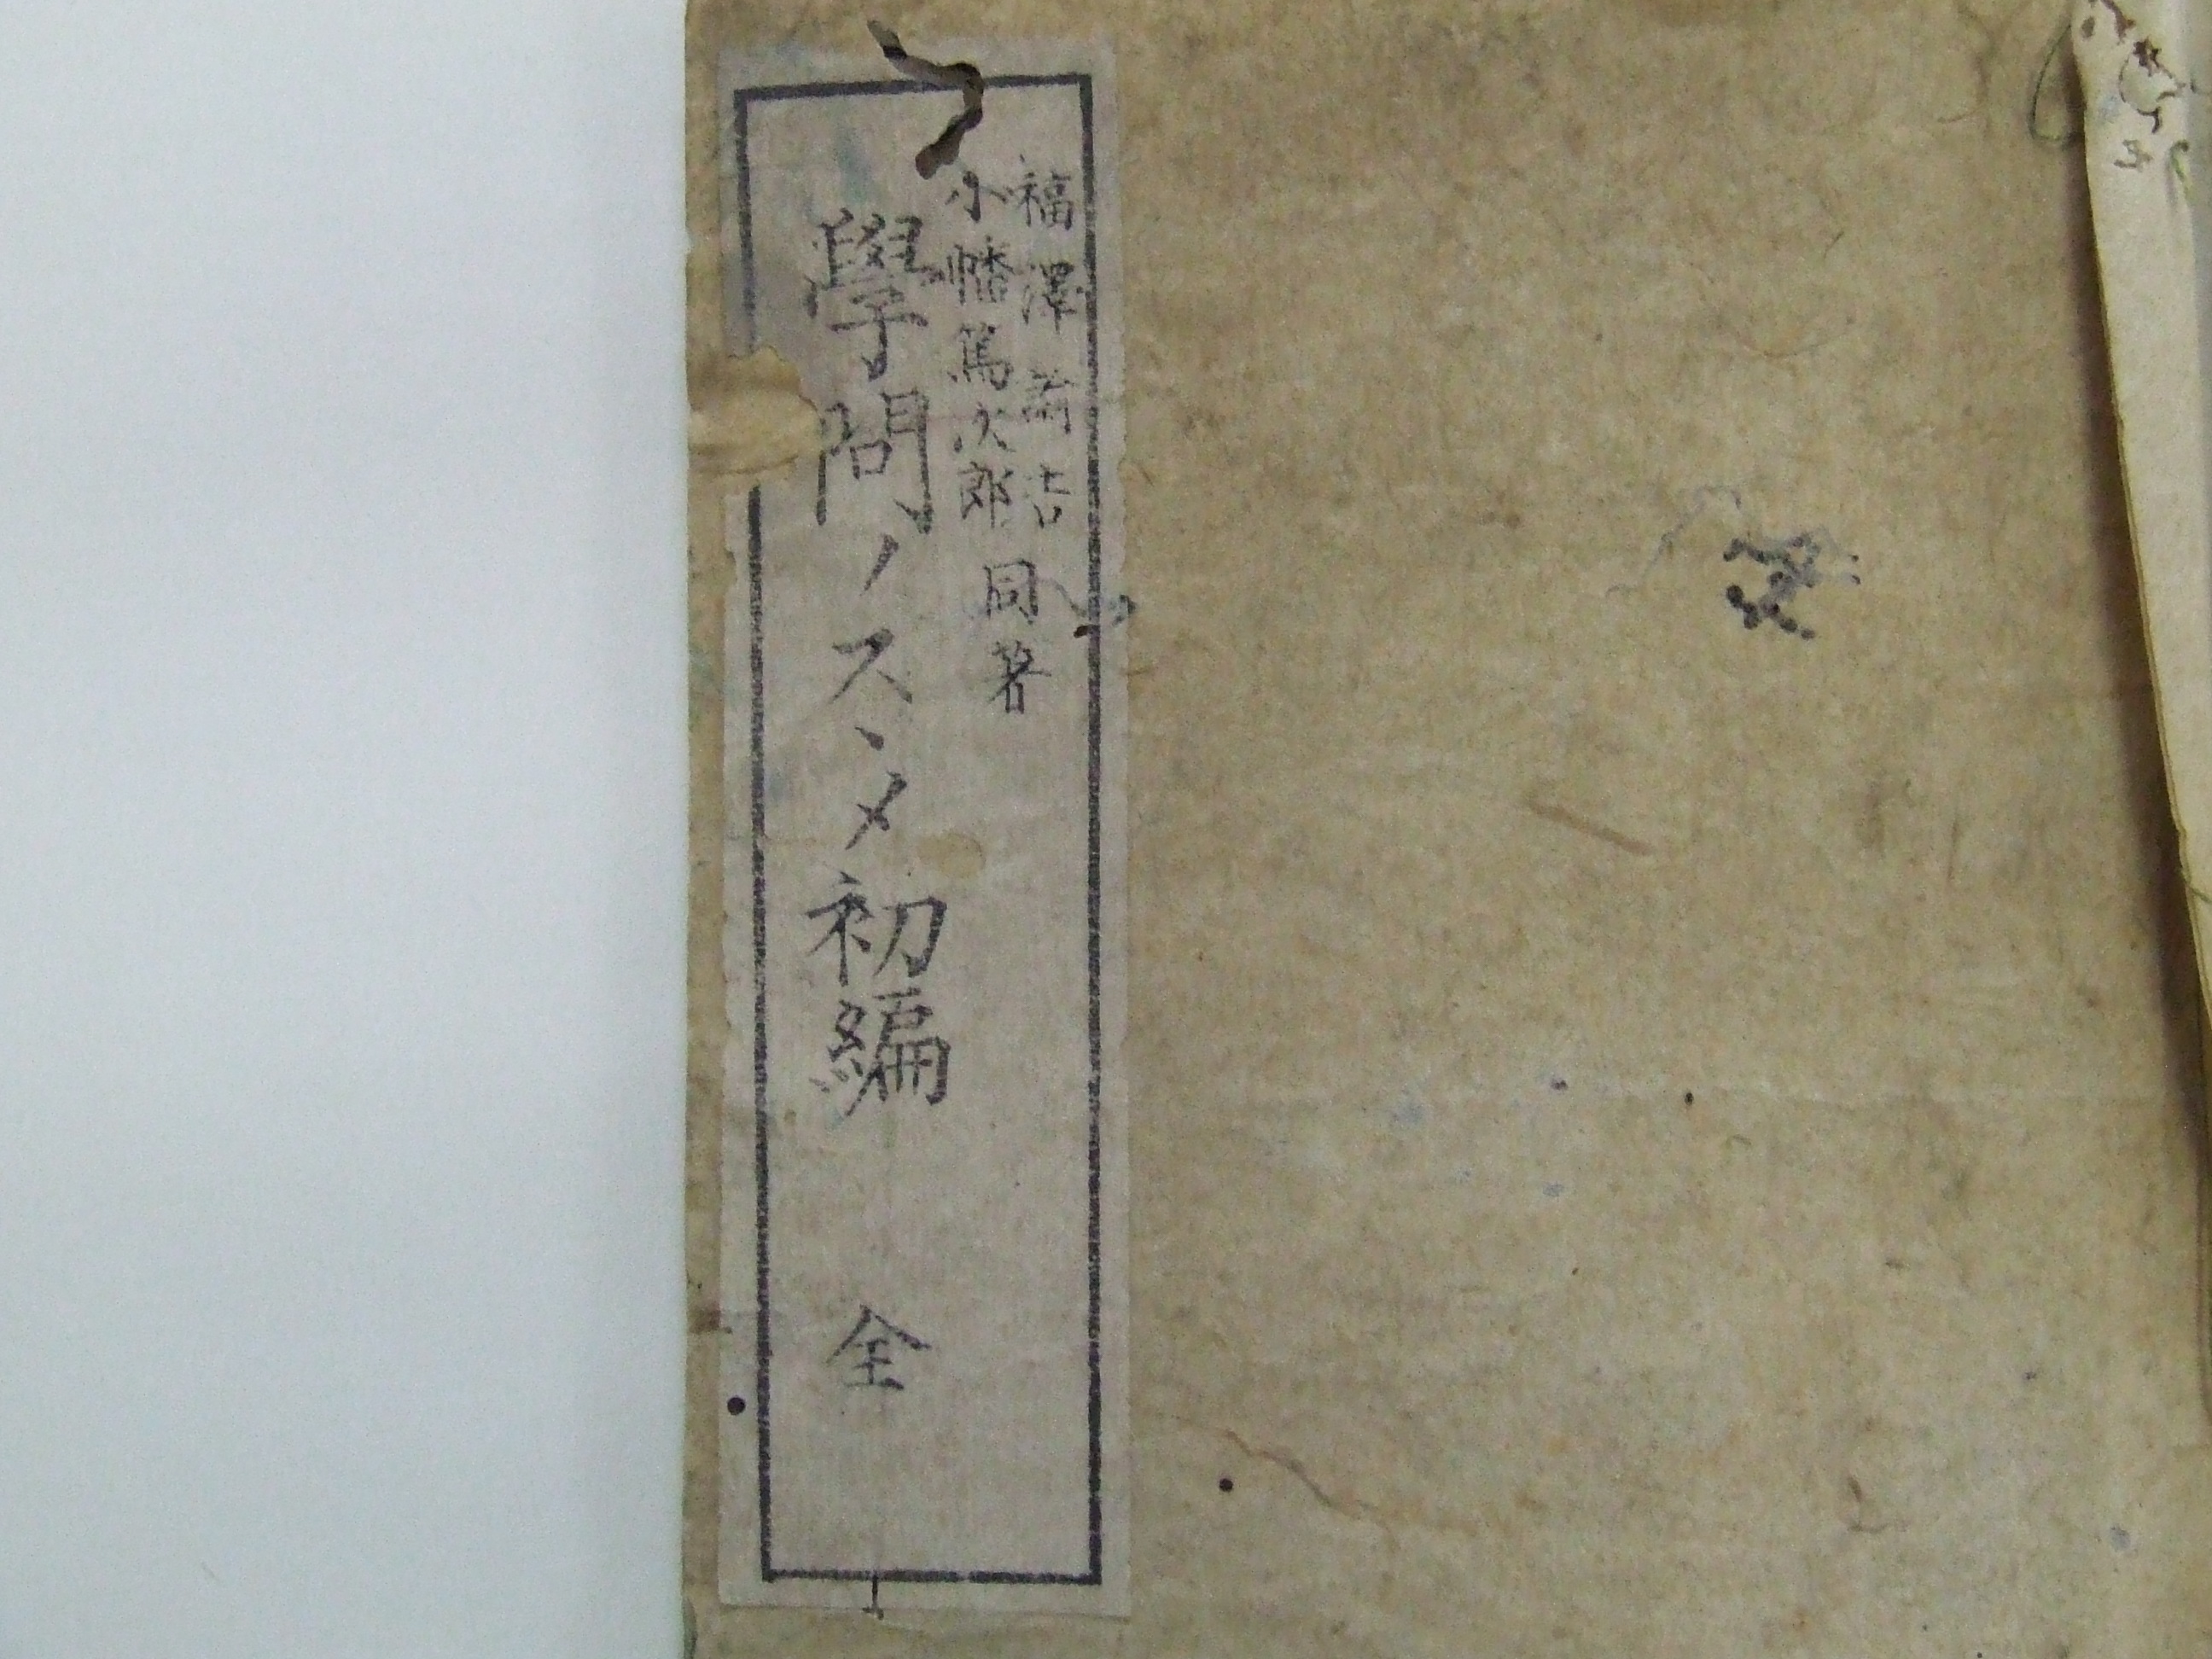 福澤諭吉
小幡篤次郎
同著
學問ノスヽメ初編 全